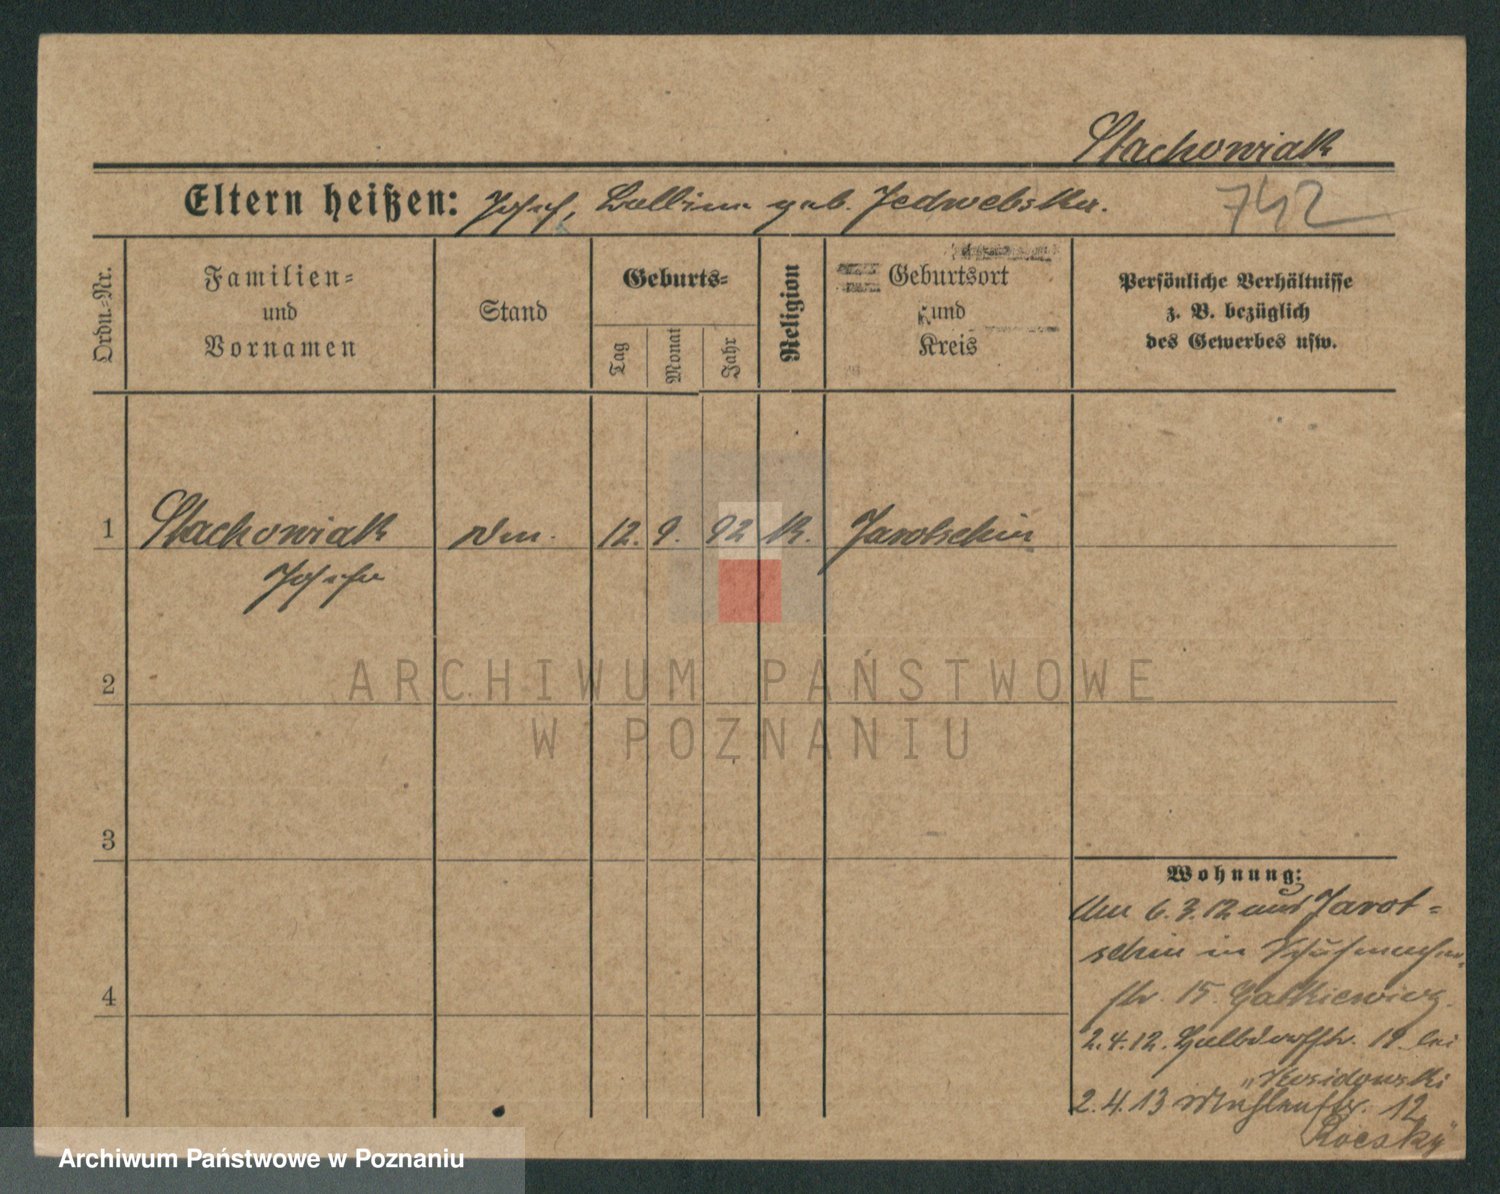 Stachowiak
Eltern heißen: Josef, Balbina geb. Jedwebska.
742
Ordn.-Nr.
Familien-
und
Vornamen
Stand
Geburts-
Tag
Monat
Jahr
Religion
Geburtsort
und
Kreis
Persönliche Verhältnisse
z. B. bezüglich
des Gewerbes usw.
1 Stachowiak 12. 9. 92 K. Jarotschin
Josefa
2
3
4
Wohnung:
6.3.12 aus Jarot-
schin in Schuhmacher-
str. 15 Gatkiewicz.
2.4.12. Halbdorfstr. 19 bei
"Kosidowski
2.4.13 Mühlenstr. 12
ARCHIWUM PAŃSTWOWE
W POZNANIU
Archiwum Państwowe w Poznaniu